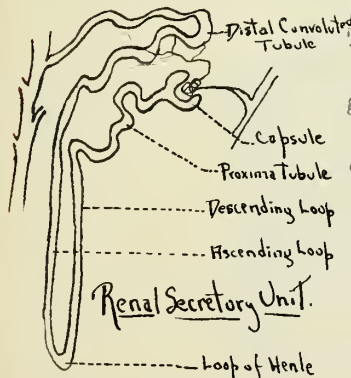 Distal Convoluted
Tubule
Capsule
Proxima Tubule
Descending Loop
Ascending Loop
Renal Secretory Unit.
Loop of Henle